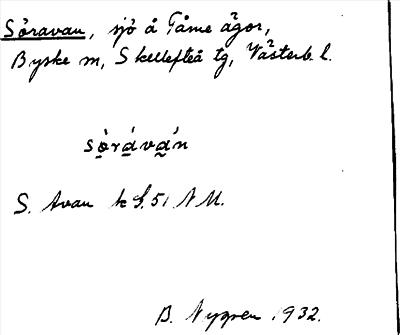 Söravan, sjö å Tåme ägor,
Byske sn, Skellefteå tg, Västerb. l.
sö̀rává̀n
S. Avan k S. 51 NM.
B. Nygren 1932.